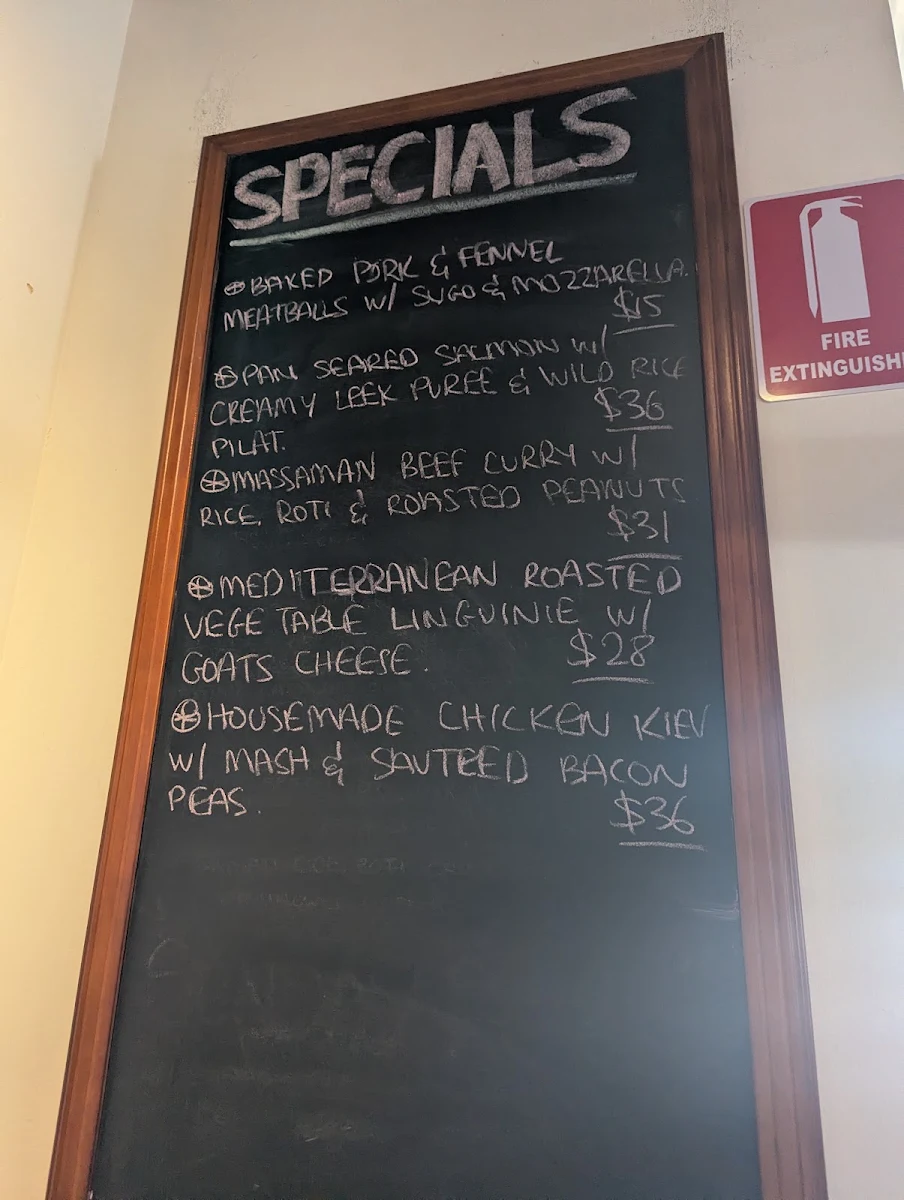 SPECIALS
BAKED PORK & FENNEL
MEATBALLS W/ SUGO & MOZZARELLA.
$15
PAN SEARED SALMON W/
CREAMY LEEK PUREE & WILD RICE
PILAT.
$36
MASSAMAN BEEF CURRY W/
RICE, ROTI & ROASTED PEANUTS
$31
MEDITERRANEAN ROASTED
VEGETABLE LINGUINIE W/
GOATS CHEESE.
$28
HOUSEMADE CHICKEN KIEV
W/ MASH & SAUTEED BACON
PEAS.
$36
FIRE
EXTINGUISH